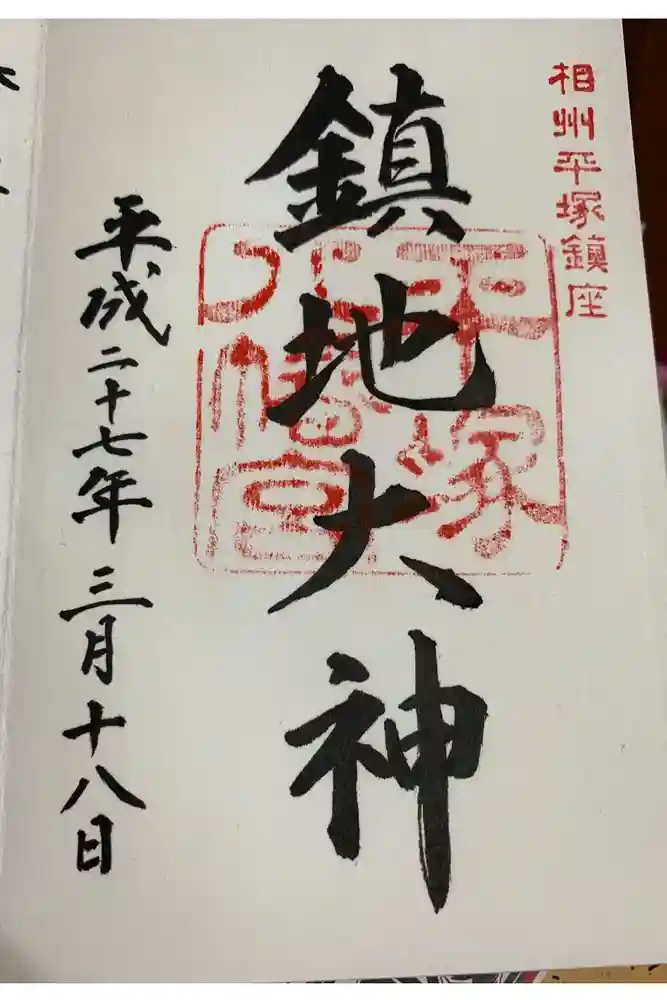 相州平塚鎮座
鎮地大神
平塚
八幡宮
平成二十七年三月十八日